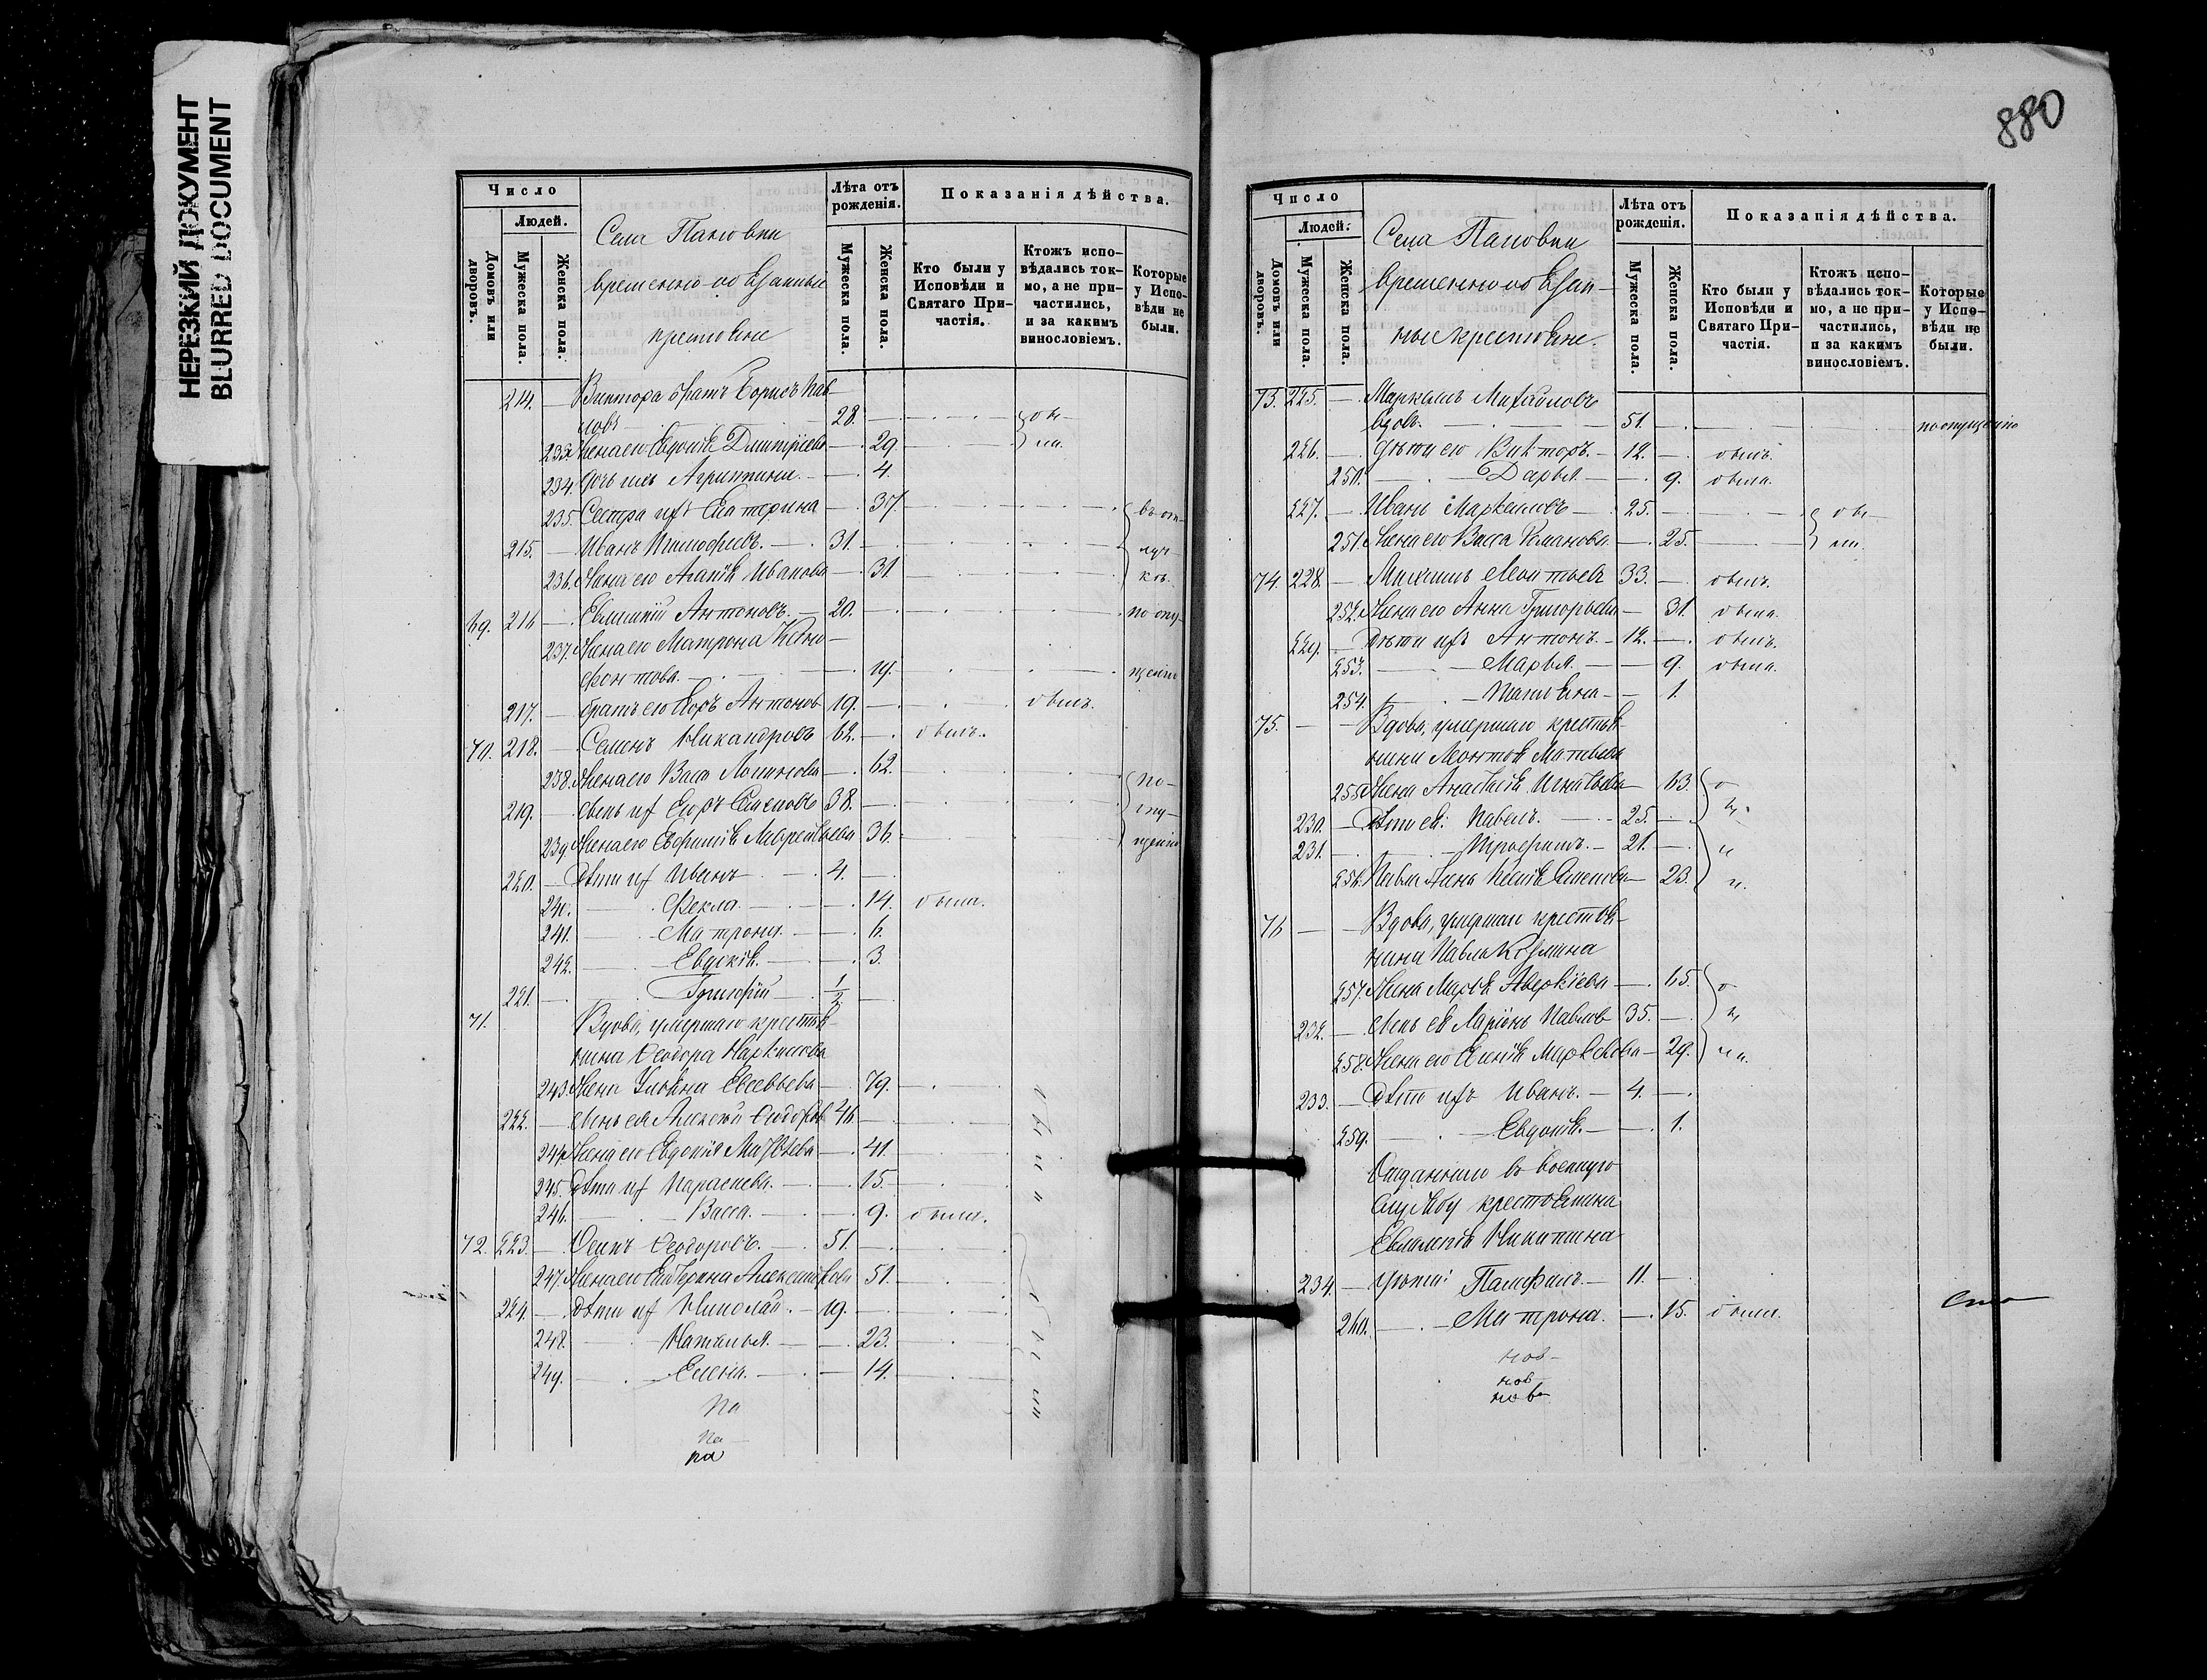 НЕРЕЗКИЙ ДОКУМЕНТ
BLURRED DOCUMENT
Число
Людей.
Домовъ или дворовъ.
Мужеска пола.
Женска пола.
Села Пановки
временно-обязанные
крестьяне
Лѣта отъ рожденія.
Мужеска пола.
Женска пола.
Показанія дѣйства.
Кто были у Исповѣди и Святаго Причастія.
Ктожъ исповѣдались токмо, а не причастились, и за какимъ винословіемъ.
Которые у Исповѣди не были.
214. Виктора братъ Борисъ Пав
ловъ 28. бы
233. Жена его Евдокія Дмитріева 29. ли.
234. Дочь ихъ Агриппина 4.
235. Сестра ихъ Екатерина 37. въ от
215. Иванъ Тимофеевъ. 31. луч
236. Жена его Агапія Иванова 31. кѣ.
69. 216 Евлампій Антоновъ. 20. по опу
237. Жена его Матрона Ксено
фонтова. 19. щенію
217. братъ его Егоръ Антоновъ 19. былъ.
70. 218. Семенъ Никандровъ 62. былъ.
238. Жена его Васса Логинова 62. по
219. сынъ их Егоръ Семеновъ 38. опу
239. Жена его Евфимія Лаврентьева 36. щенію
220. Дѣти их Иванъ 4.
240. Фекла. 14. была.
241. Матрона. 6.
242. Евдокія. 3.
221. Григорій 1/2
71. Вдова, умершаго крестья
нина Ѳеодора Наркисова
243. Жена Ульяна Евсевьева 79.
222. сынъ ея Алексѣй Ѳеодоров 46.
244. Жена его Евдокія Матвѣева 41.
245. Дѣти их Параскева. 15.
246. Васса. 9. была.
72. 223. Осипъ Ѳеодоровъ. 51.
247. Жена его Екатерина Алексѣева 51.
224. Дѣти их Николай. 19.
248. Наталья. 23.
249. Елена. 14.
были
па
па
па
880
Число
Людей.
Домовъ или дворовъ.
Мужеска пола.
Женска пола.
Села Пановки
временно-обязан
ные крестьяне.
Лѣта отъ рожденія.
Мужеска пола.
Женска пола.
Показанія дѣйства.
Кто были у Исповѣди и Святаго Причастія.
Ктожъ исповѣдались токмо, а не причастились, и за какимъ винословіемъ.
Которые у Исповѣди не были.
73. 225. Маркелъ Михайловъ
вдовъ. 51. по опущенію
226. Дѣти его Викторъ. 12. былъ.
250. Дарья. 9. была.
227. Иванъ Маркеловъ 25. бы
251. Жена его Васса Романова. 25. ли.
74. 228. Михаилъ Леонтьевъ 33. былъ.
252. Жена его Анна Григорьева 31. была.
229. Дѣти ихъ Антонъ. 12. былъ.
253. Марья. 9. была.
254. Татьяна 1.
75. Вдова, умершаго крестья
нина Леонтія Матвѣева
255. Жена Анастасія Игнатьева 63. б
230. Дѣти ея: Павелъ. 25. ы
231. Трофимъ. 21. л
256. Павла Жена Ксенія Семенова 23. и.
76 Вдова, умершаго крестья
нина Павла Козьмина
257. Жена Марья Аверкіева 65. б
232. сынъ ея Ларіонъ Павлов 35. ы
258. Жена его Ксенія Маркелова 29. ли.
233. Дѣти ихъ Иванъ. 4.
259. Евдокія. 1.
Отданнаго въ военную
службу крестьянина
Евлампія Никитина
234. дѣти: Памфилъ. 11.
260. Матрона. 15. была.
нов
нов
нов